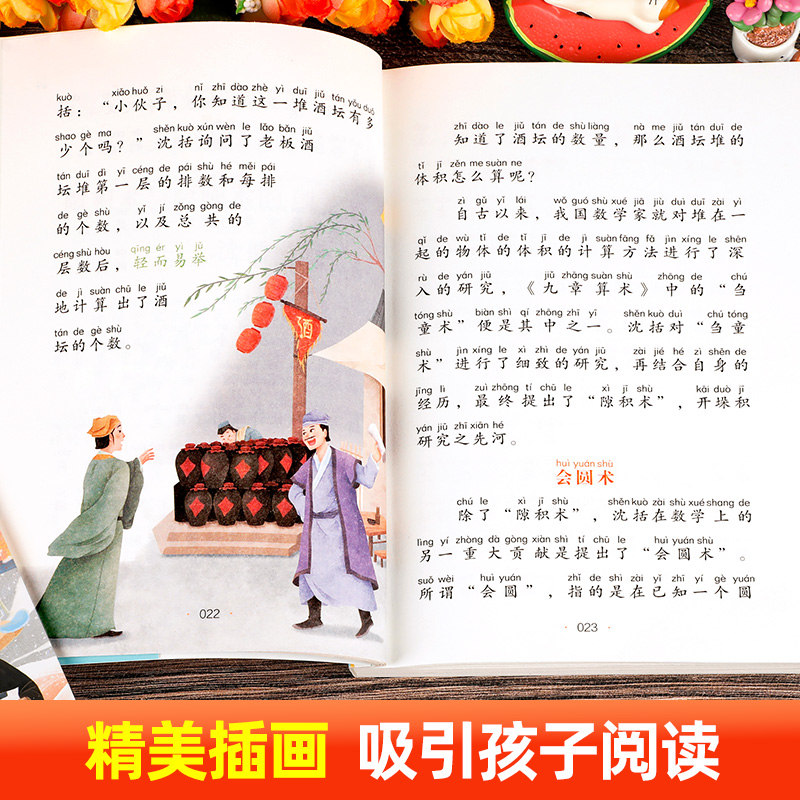 kuò xiǎo huǒ zi nǐ zhī dào zhè yì duī jiǔ tán yǒu duō
括：“小伙子，你知道这一堆酒坛有多
shao gè ma shěn kuò xún wèn le lǎo bǎn jiǔ
少个吗？”沈括询问了老板酒
tán duī dì yī céng de pái shù hé měi pái
坛堆第一层的排数和每排
de gè shù yǐ jí zǒng gòng de
的个数，以及总共的
céng shù hòu qīng ér yì jǔ
层数后，轻而易举
de jì suàn chū le jiǔ
地计算出了酒
tán de gè shù
坛的个数。
酒
022
zhī dào le jiǔ tán de shù liàng nà me jiǔ tán duī de
知道了酒坛的数量，那么酒坛堆的
tǐ jī zěn me suàn ne
体积怎么算呢？
zì gǔ yǐ lái wǒ guó shù xué jiā jiù duì duī zài yì
自古以来，我国数学家就对堆在一
qǐ de wù tǐ de tǐ jī de jì suàn fāng fǎ jìn xíng le shēn
起的物体的体积的计算方法进行了深
rù de yán jiū jiǔ zhāng suàn shù zhōng de chú
入的研究，《九章算术》中的“刍
tóng shù biàn shì qí zhōng zhī yī shěn kuò duì chú tóng
童术”便是其中之一。沈括对“刍童
shù jìn xíng le xì zhì de yán jiū zài jié hé zì shēn de
术”进行了细致的研究，再结合自身的
jīng lì zuì zhōng tí chū le xì jī shù kāi duò jī
经历，最终提出了“隙积术”，开垛积
yán jiū zhī xiān hé
研究之先河。
huì yuán shù
会圆术
chú le xì jī shù shěn kuò zài shù xué shang de
除了“隙积术”，沈括在数学上的
lìng yí zhòng dà gòng xiàn shì tí chū le huì yuán shù
另一重大贡献是提出了“会圆术”。
suǒ wèi huì yuán zhǐ de shì zài yǐ zhī yí gè yuán
所谓“会圆”，指的是在已知一个圆
023
精美插画 吸引孩子阅读